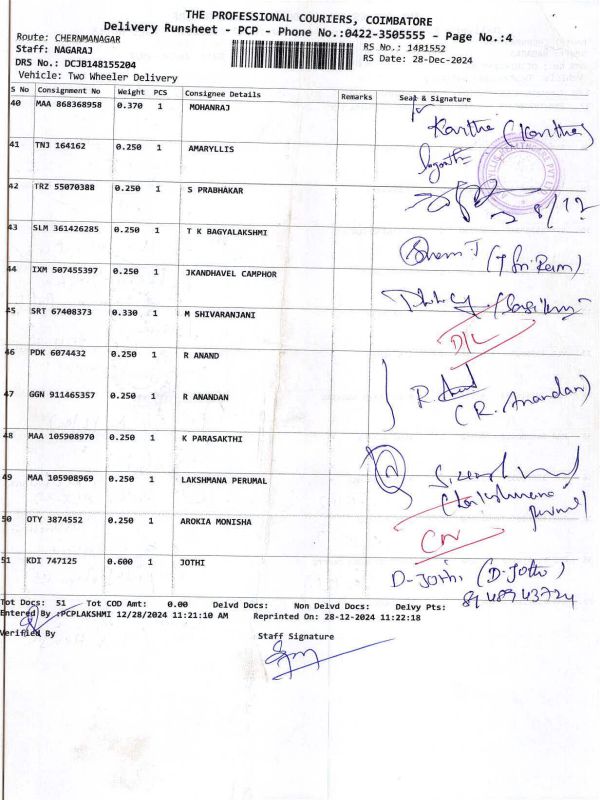 THE PROFESSIONAL COURIERS, COIMBATORE
Delivery Runsheet - PCP - Phone No.:0422-3505555 - Page No.:4
Route: CHERNMANAGAR
RS No.: 1481552
Staff: NAGARAJ
RS Date: 28-Dec-2024
DRS No.: DCJB148155204
Vehicle: Two Wheeler Delivery
S No Consignment No Weight PCS Consignee Details Remarks Seal & Signature
40 MAA 868368958 0.370 1 MOHANRAJ
Karthi (Karthi)
41 TNJ 164162 0.250 1 AMARYLLIS
42 TRZ 55070388 0.250 1 S PRABHAKAR
43 SLM 361426285 0.250 1 T K BAGYALAKSHMI
44 IXM 507455397 0.250 1 JKANDHAVEL CAMPHOR
45 SRT 67408373 0.330 1 M SHIVARANJANI
D/L
46 PDK 6074432 0.250 1 R ANAND
47 GGN 911465357 0.250 1 R ANANDAN
R. Anand
(R. Anandan)
48 MAA 105908970 0.250 1 K PARASAKTHI
49 MAA 105908969 0.250 1 LAKSHMANA PERUMAL
(Lakshmana
perumal)
50 OTY 3874552 0.250 1 AROKIA MONISHA
CN
51 KDI 747125 0.600 1 JOTHI
D-Jothi (D.Jothi)
8148943724
Tot Docs: 51 Tot COD Amt: 0.00 Delvd Docs: Non Delvd Docs: Delvy Pts:
Entered By :PCPLAKSHMI 12/28/2024 11:21:10 AM Reprinted On: 28-12-2024 11:22:18
Verified By
Staff Signature